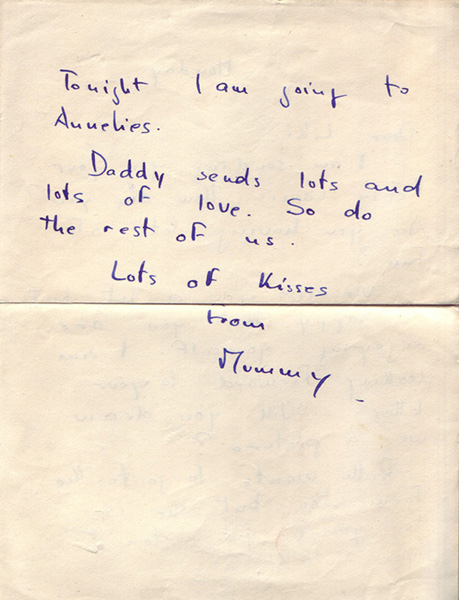 Tonight I am going to
Annelies.
Daddy sends lots and
lots of love. So do
the rest of us.
Lots of Kisses
from
Mummy